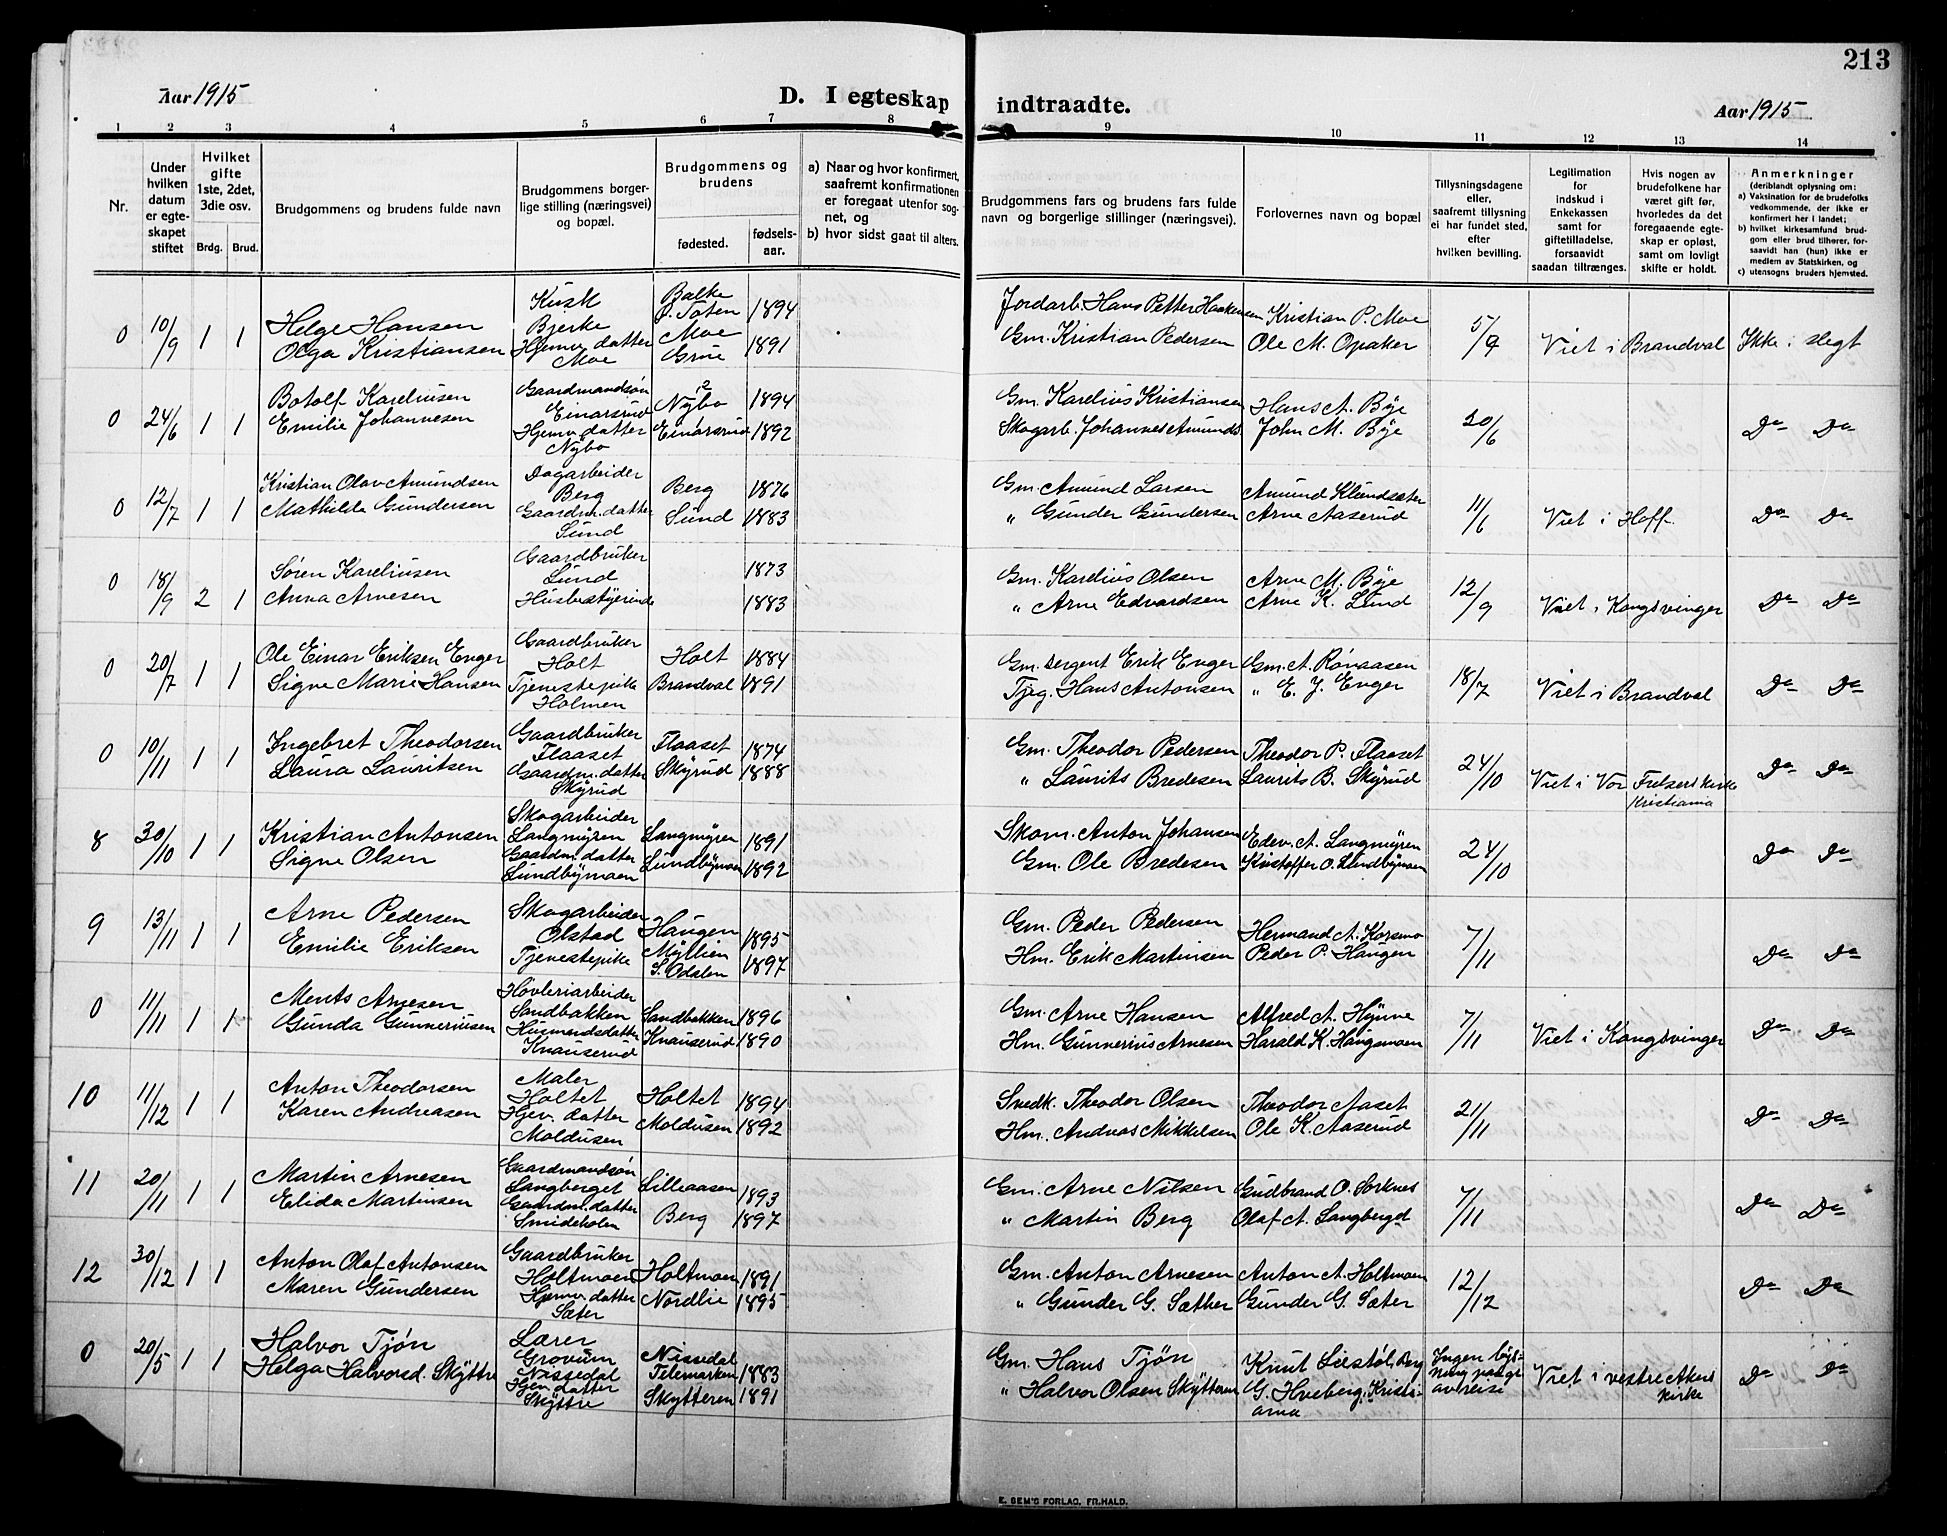 213
Aar 1915
D. I egteskap indtraadte.
Aar 1915
1 2 3 4 5 6 7 8 9 10 11 12 13 14
Nr.
Under hvilken datum er egteskapet stiftet
Hvilket gifte 1ste, 2det, 3die osv.
Brdg. Brud.
Brudgommens og brudens fulde navn
Brudgommens borgerlige stilling (næringsvei) og bopæl.
Brudgommens og brudens
fødested.
fødselsaar.
a) Naar og hvor konfirmert, saafremt konfirmationen er foregaat utenfor sognet, og
b) hvor sidst gaat til alters.
Brudgommens fars og brudens fars fulde navn og borgerlige stillinger (næringsvei).
Forlovernes navn og bopæl
Tillysningsdagene eller, saafremt tillysning ei har fundet sted, efter hvilken bevilling.
Legitimation for indskud i Enkekassen samt for giftetilladelse, forsaavidt saadan tiltrænges.
Hvis nogen av brudefolkene har været gift før, hvorledes da det foregaaende egteskap er opløst, samt om lovligt skifte er holdt.
Anmerkninger
(deriblandt oplysning om:
a) Vaksination for de brudefolks vedkommende, der ikke er konfirmert her i landet;
b) hvilket kirkesamfund brudgom eller brud tilhører, forsaavidt han (hun) ikke er medlem av Statskirken, og
c) utensogns bruders hjemsted.
0 10/9 1 1 Helge Hansen Kusk Bjerke Balke Ø. Toten 1894 Jordarb. Hans Petter Haakensen Kristian P. Moe 5/9 Viet i Brandval Ikke i slegt
Olga Kristiansen Hjemv. datter Moe Moe Grue 1891 Gm. Kristian Pedersen Ole M. Opaker
0 24/6 1 1 Botolf Kareliusen Gaardmandsøn Einarsrud Nybo 1894 Gm. Karelius Kristiansen Hans A. Bye 20/6 Do Do
Emilie Johannesen Hjemv. datter Nybo Einarsrud 1892 Skogarb. Johannes Amunds. John M. Bye
0 12/7 1 1 Kristian Olav Amundsen Dagarbeider Berg Berg 1876 Gm. Amund Larsen Amund Klundsæter 11/6 Viet i Hoff. Do Do
Mathilda Gundersen Gaardm. datter Sund Sund 1883 " Gunder Gundersen Arne Aaserud
0 18/9 2 1 Søren Kareliusen Gaardbruker Lund 1873 Gm. Karelius Olsen Arne M. Bye 12/9 Viet i Kongsvinger Do Do
Anna Arnesen Husbestyrerinde 1883 " Arne Edvardsen Arne K. Lund
0 20/7 1 1 Ole Einar Eriksen Enger Gaardbruker Holt Holt 1884 Gm. sergent Erik Enger Gm. A. Rønaasen 18/7 Viet i Brandval Do Do
Signe Marie Hansen Tjenestepike Holmen Brandval 1891 Tjeg. Hans Antonsen " E. J. Enger
0 10/11 1 1 Ingebret Theodorsen Gaardbruker Flaaset Flaaset 1874 Gm. Theodor Pedersen Theodor P. Flaaset 24/10 Viet i Vor Frelsers kirke Kristiania Do Do
Laura Lauritsen Gaardm. datter Skyrud Skyrud 1888 " Laurits Bredesen Laurits B. Skyrud
8 30/10 1 1 Kristian Antonsen Skogarbeider Langmyren Langmyren 1891 Skom. Anton Johansen Edev. A. Langmyren 24/10 Do Do
Signe Olsen Gaardm. datter Lundbymoen Lundbymoen 1892 Gm. Ole Bredesen Kristoffer O. Lundbymoen
9 13/11 1 1 Arne Pedersen Skogarbeider Olstad Haugen 1895 Gm. Peder Pedersen Hermand A. Korsmo 7/11 Do Do
Emilie Eriksen Tjenestepike Myllien S. Odalen 1897 Hm. Erik Martinsen Peder P. Haugen
0 11/11 1 1 Ments Arnesen Høvleriarbeider Sandbakken Sandbakken 1896 Gm. Arne Hansen Alfred A. Hynne 7/11 Viet i Kongsvinger Do Do
Gunda Gunneriusen Husmandsdatter Knauserud Knauserud 1890 Hm. Gunnerius Arnesen Harald K. Haugsmoen
10 11/12 1 1 Anton Theodorsen Maler Holtet Holtet 1894 Snedk. Theodor Olsen Theodor Aaset 21/11 Do Do
Karen Andreasen Hjev. datter Moldusen Moldusen 1892 Hm. Andreas Mikkelsen Ole K. Aaserud
11 20/11 1 1 Martin Arnesen Gaardmandsøn Langberget Lilleaasen 1893 Gm. Arne Nilsen Gudbrand O. Sorknes 7/11 Do Do
Elida Martinsen Gaardm. datter Smideholm Berg 1897 " Martin Berg Olaf A. Langberget
12 30/12 1 1 Anton Olaf Antonsen Gaardbruker Holtmoen Holtmoen 1891 Gm. Anton Arnesen Anton A. Holtmoen 12/12 Do Do
Maren Gundersen Hjemv. datter Sæter Nordlie 1895 " Gunder G. Sæther Gunder G. Sæter
0 20/5 1 1 Halvor Tjøn Lærer Grovum Nissedal Nissedal Telemarken 1883 Gm. Hans Tjøn Knut Liestøl, Berg Ingen lysning paa gr. av reise Viet i vestre Akers kirke Do Do
Helga Halvorsd. Skyttre Hjem. datter Skyttre Skytteren 1891 " Halvor Olsen Skytteren G. Hveberg, Kristiania
E. SEM'S FORLAG, FR.HALD.